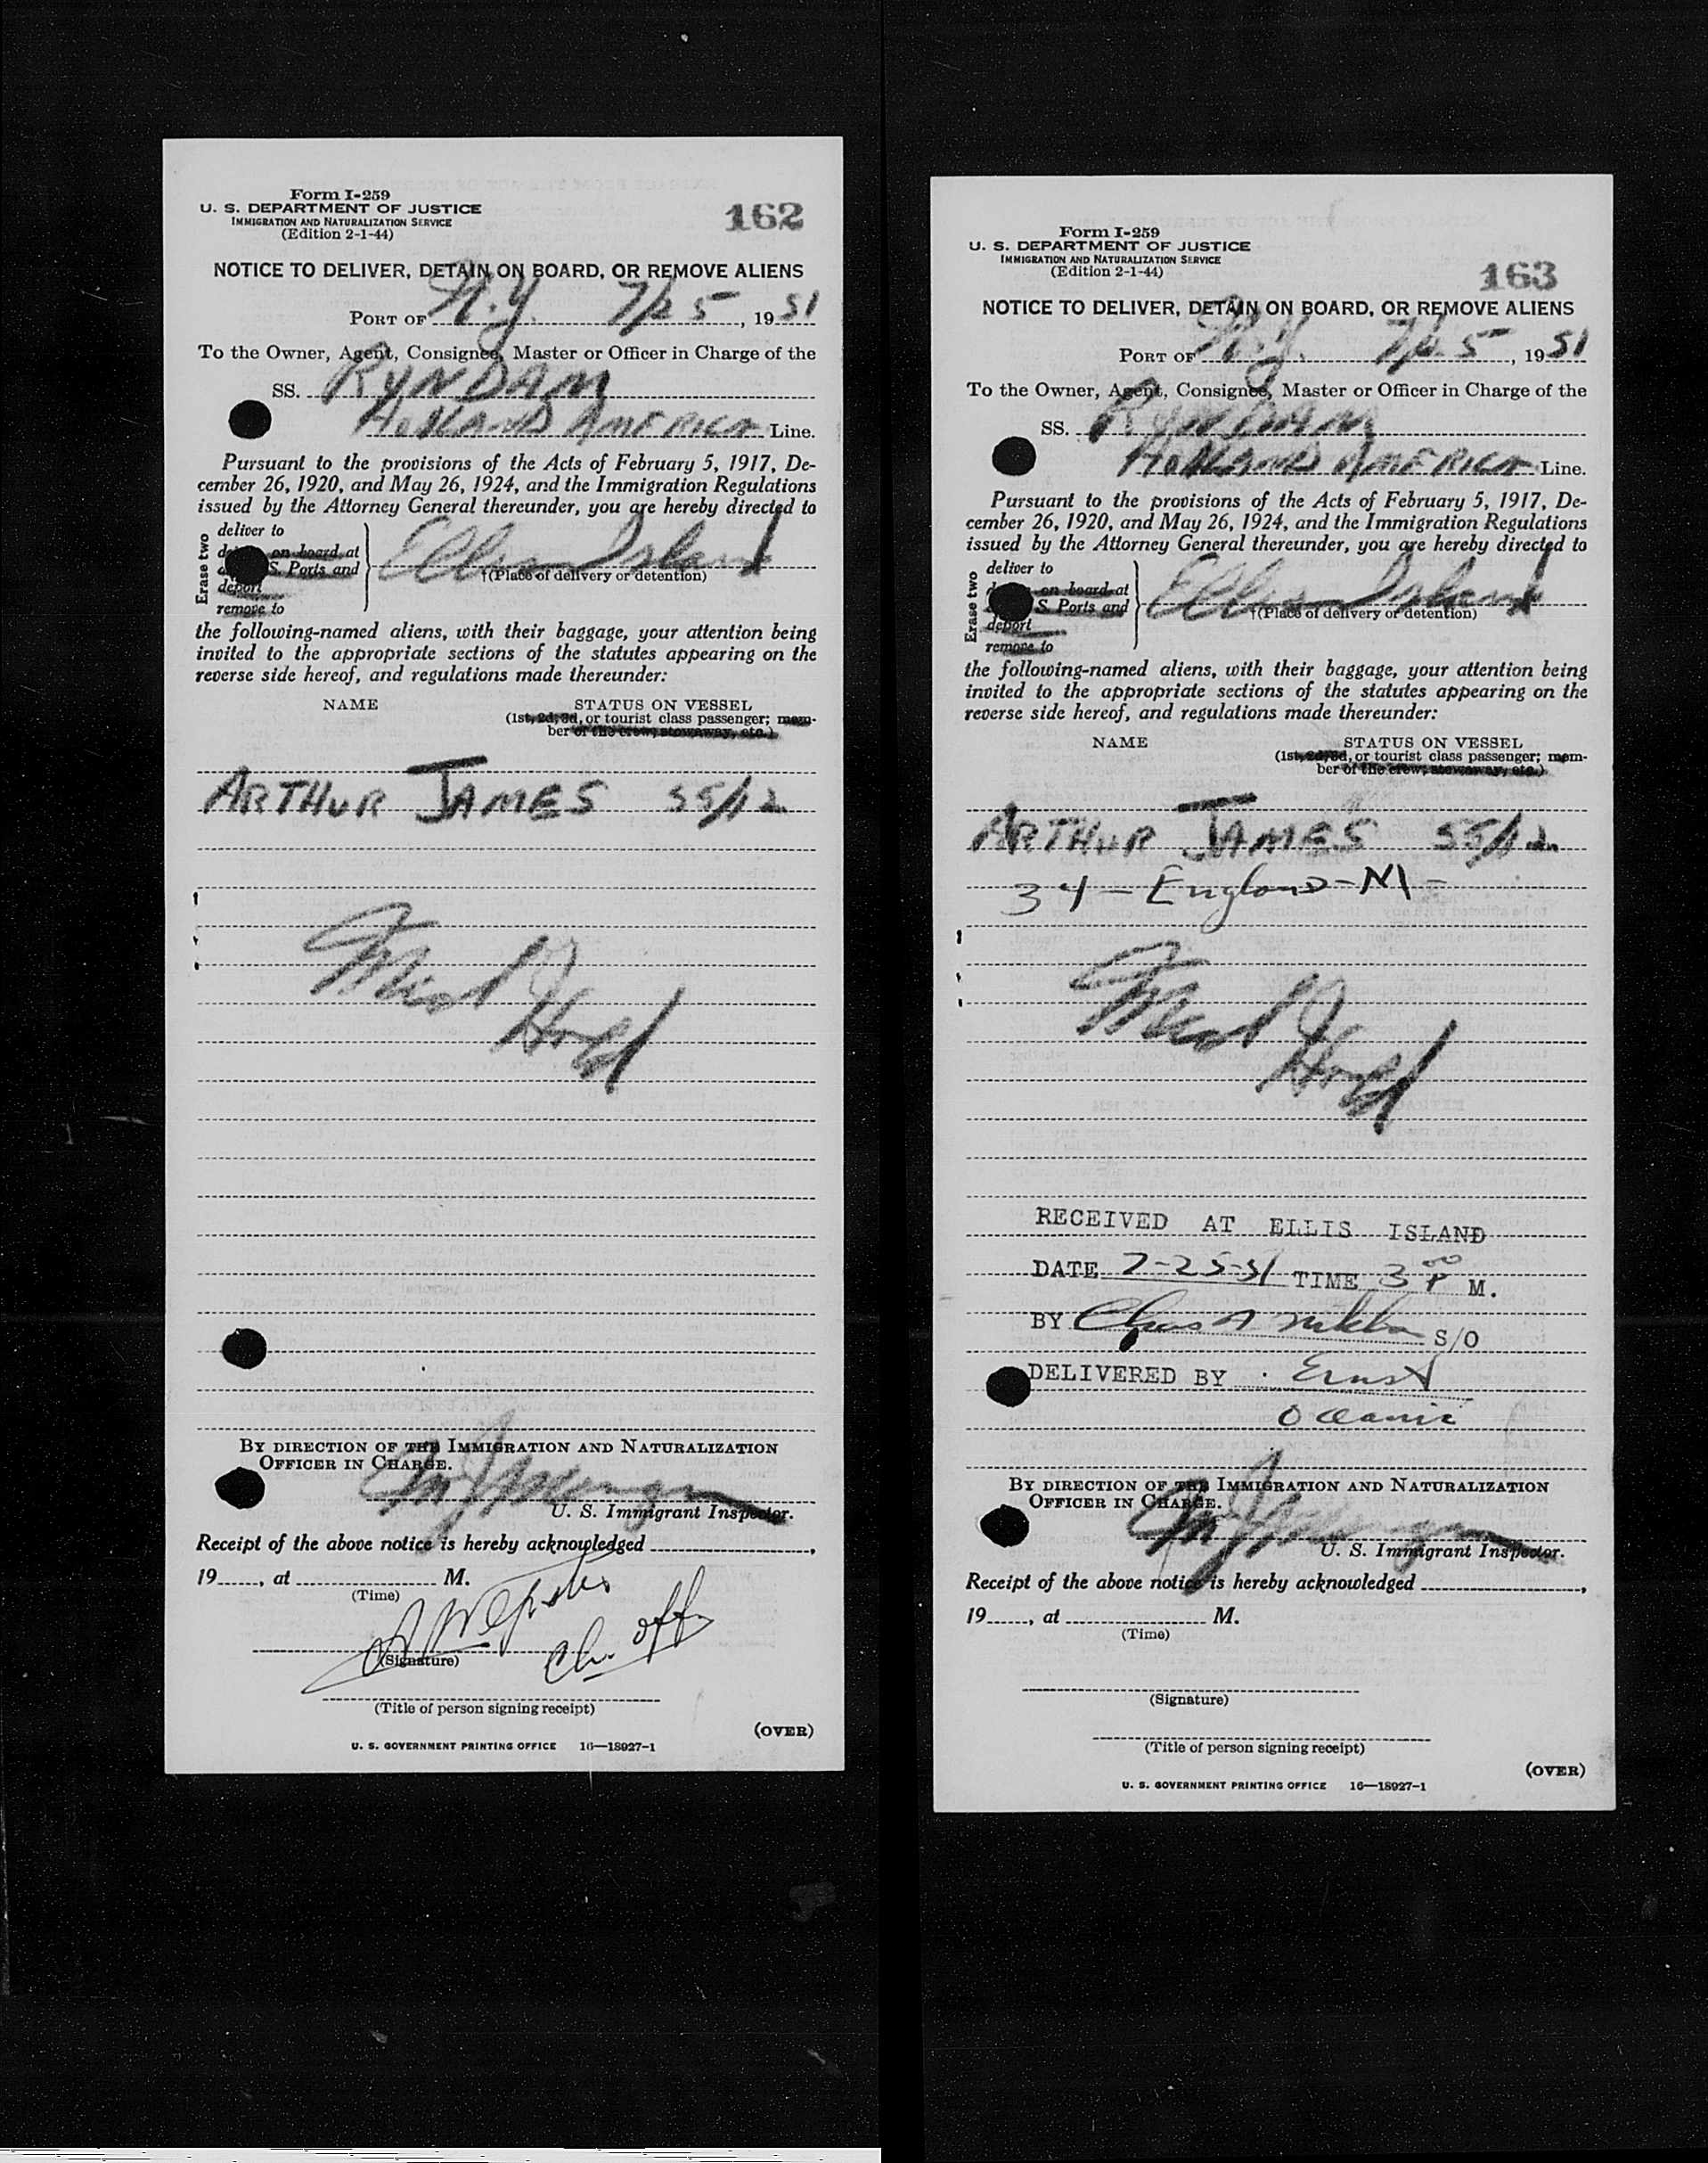 Form I-259
U. S. DEPARTMENT OF JUSTICE
IMMIGRATION AND NATURALIZATION SERVICE
(Edition 2-1-44)
162
NOTICE TO DELIVER, DETAIN ON BOARD, OR REMOVE ALIENS
PORT OF N.Y. 7/25, 1951
To the Owner, Agent, Consignee, Master or Officer in Charge of the
SS. RYNDAM
HOLLAND AMERICA Line.
Pursuant to the provisions of the Acts of February 5, 1917, De-
cember 26, 1920, and May 26, 1924, and the Immigration Regulations
issued by the Attorney General thereunder, you are hereby directed to
Erase two
deliver to
on board at
S. Ports and
deport
remove to
Ellis Island
†(Place of delivery or detention)
the following-named aliens, with their baggage, your attention being
invited to the appropriate sections of the statutes appearing on the
reverse side hereof, and regulations made thereunder:
NAME STATUS ON VESSEL
(1st, 2d, 3d, or tourist class passenger; mem-
ber of the crew; stowaway, etc.)
ARTHUR JAMES 55/12
Hold
BY DIRECTION OF THE IMMIGRATION AND NATURALIZATION
OFFICER IN CHARGE.
U. S. Immigrant Inspector.
Receipt of the above notice is hereby acknowledged
19, at M.
(Time)
ch. off
(Signature)
(Title of person signing receipt)
(OVER)
U. S. GOVERNMENT PRINTING OFFICE 16—18927-1
Form I-259
U. S. DEPARTMENT OF JUSTICE
IMMIGRATION AND NATURALIZATION SERVICE
(Edition 2-1-44)
163
NOTICE TO DELIVER, DETAIN ON BOARD, OR REMOVE ALIENS
PORT OF N.Y. 7/25, 1951
To the Owner, Agent, Consignee, Master or Officer in Charge of the
SS. RYNDAM
HOLLAND AMERICA Line.
Pursuant to the provisions of the Acts of February 5, 1917, De-
cember 26, 1920, and May 26, 1924, and the Immigration Regulations
issued by the Attorney General thereunder, you are hereby directed to
Erase two
deliver to
on board at
S. Ports and
deport
remove to
Ellis Island
†(Place of delivery or detention)
the following-named aliens, with their baggage, your attention being
invited to the appropriate sections of the statutes appearing on the
reverse side hereof, and regulations made thereunder:
NAME STATUS ON VESSEL
(1st, 2d, 3d, or tourist class passenger; mem-
ber of the crew; stowaway, etc.)
ARTHUR JAMES 55/12
34 - England - NI -
Hold
RECEIVED AT ELLIS ISLAND
DATE 7-25-51 TIME 3 00 P M.
BY Chas A S/O
DELIVERED BY Ernst
Oceanic
BY DIRECTION OF THE IMMIGRATION AND NATURALIZATION
OFFICER IN CHARGE.
U. S. Immigrant Inspector.
Receipt of the above notice is hereby acknowledged
19, at M.
(Time)
(Signature)
(Title of person signing receipt)
(OVER)
U. S. GOVERNMENT PRINTING OFFICE 16—18927-1